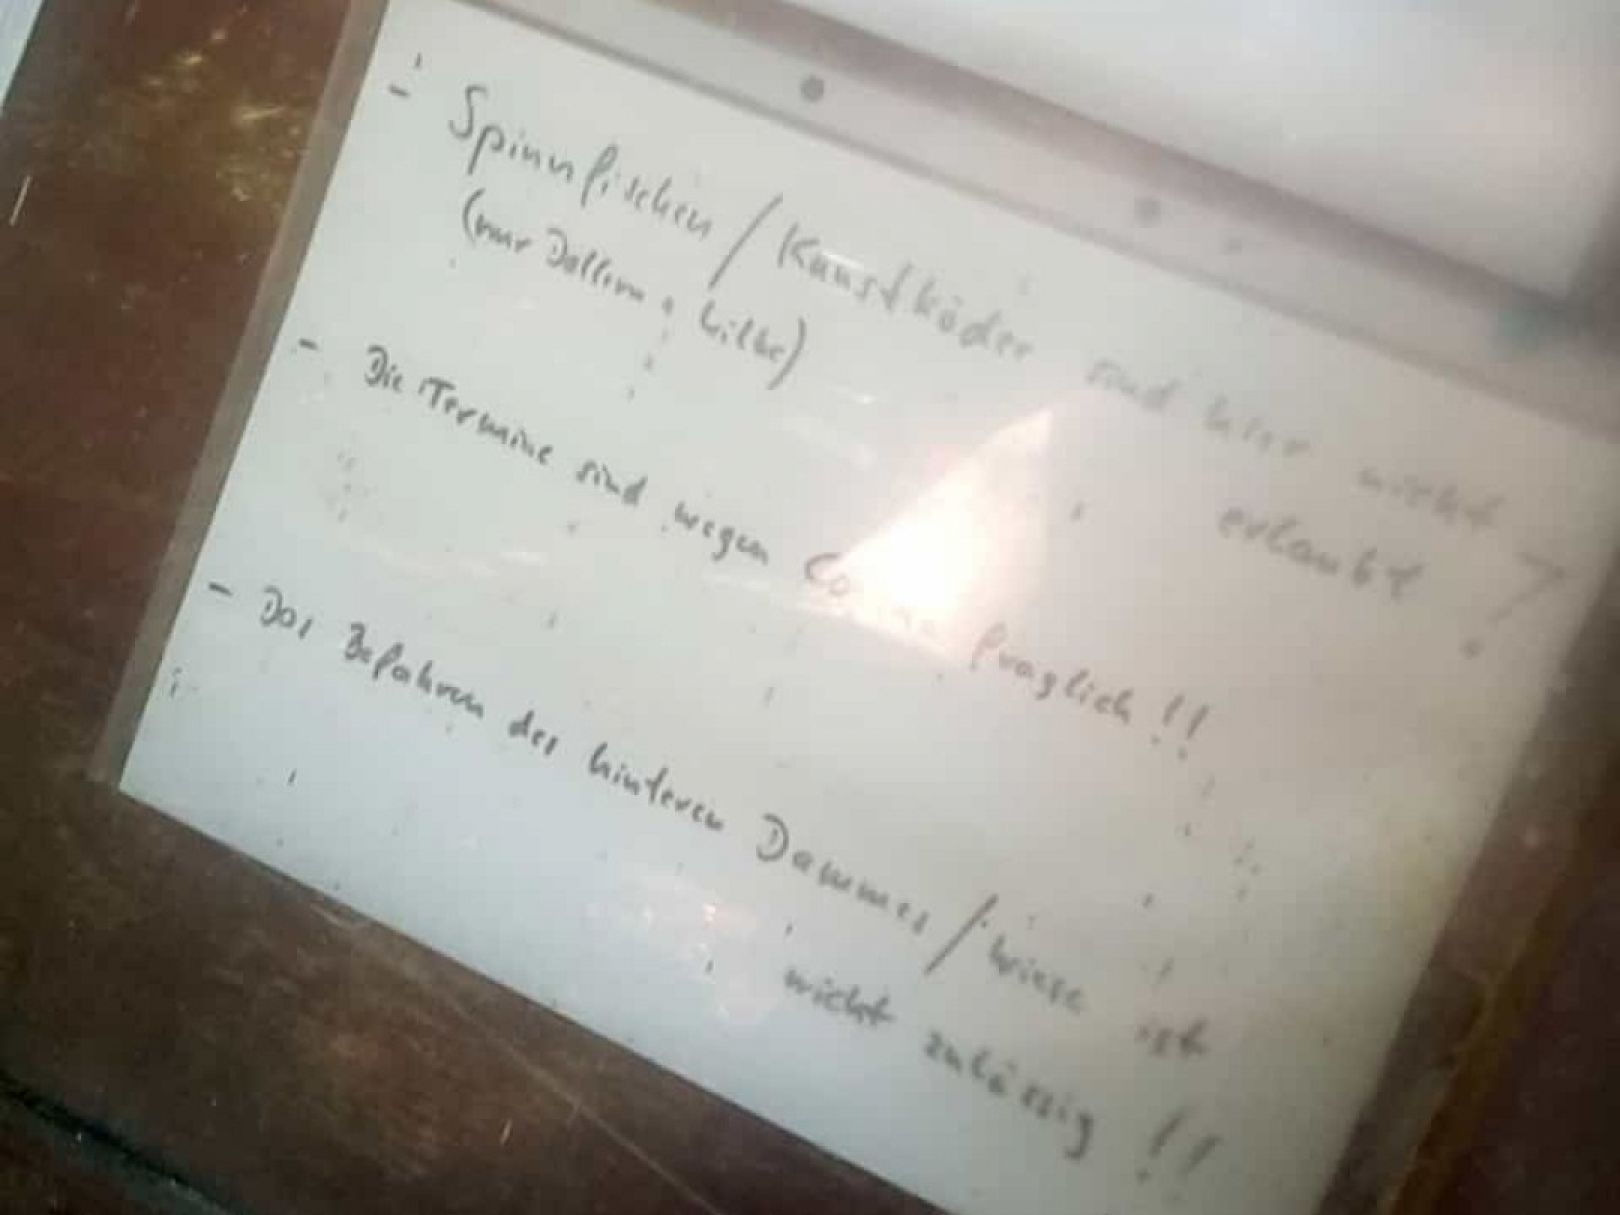 - Spinnfischen / Kunstköder sind hier nicht
erlaubt !
(nur Dallern & Wilke)
- Die Termine sind wegen Corona fraglich !!
- Das Befahren des hinteren Dammes / Wiese ist
nicht zulässig !!